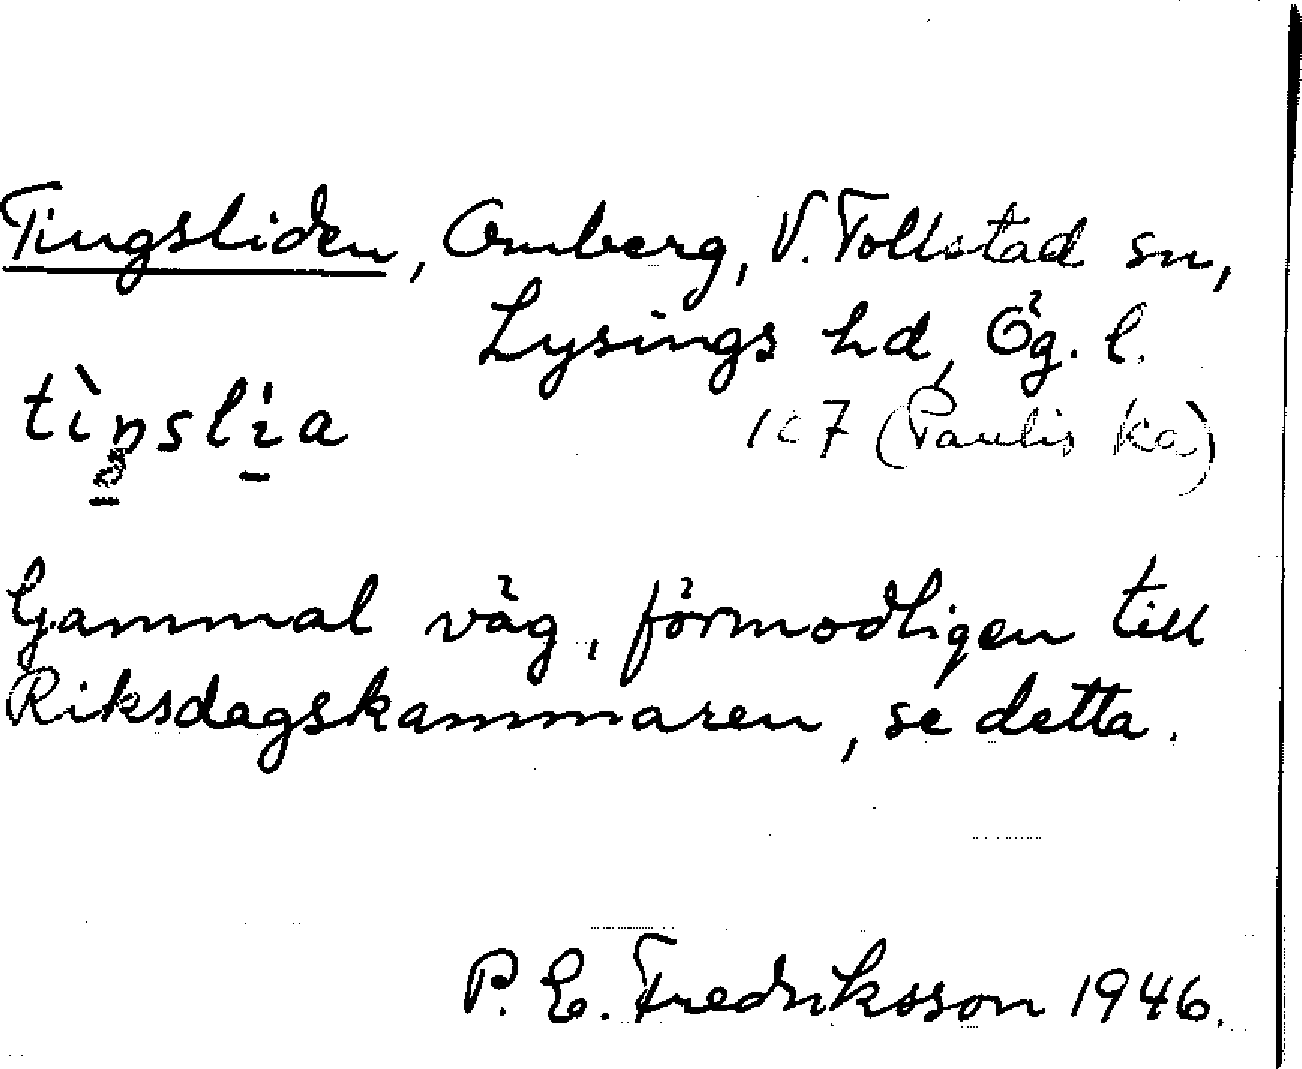 Tingsliden, Omberg, V. Tollstad sn,
Lysings hd, Ög. l.
tìŋslı̇̀a
107 (Paulis ka)
Gammal väg, förmodligen till
Riksdagskammaren, se detta.
P. E. Fredriksson 1946.